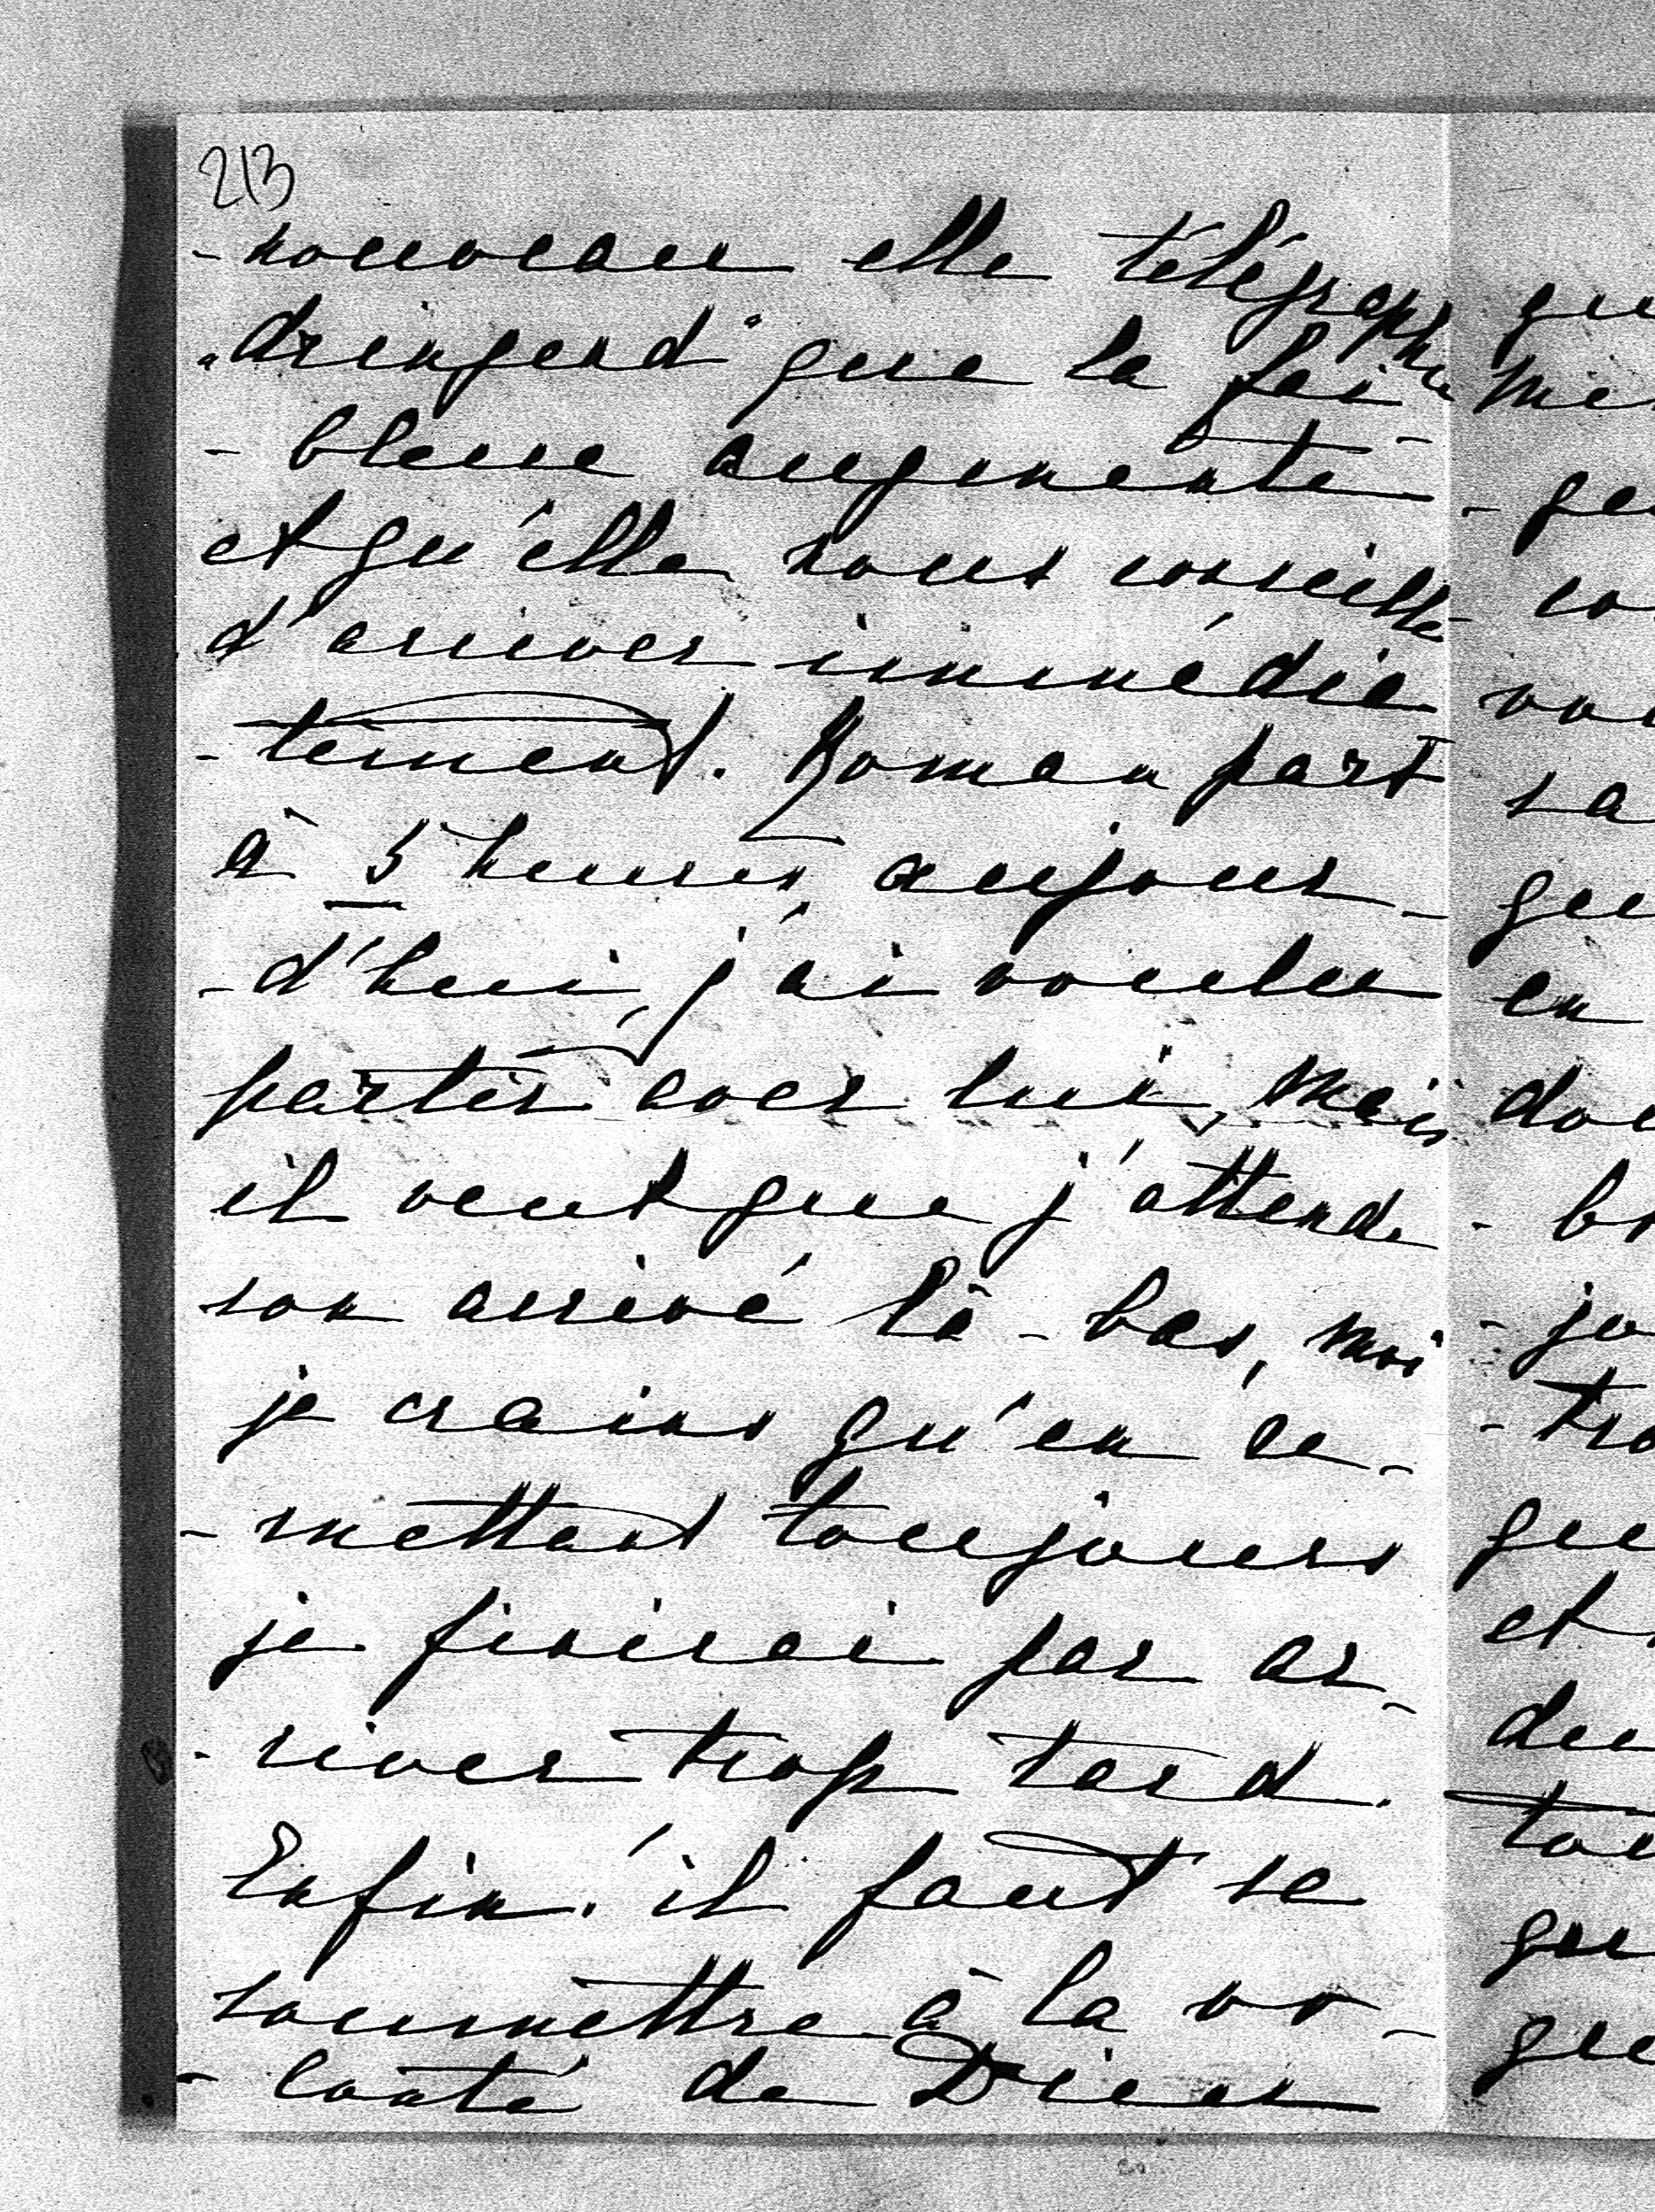 213
-nouveau elle télégraphie
"dringend" que la fai-
-blesse augmente
et qu'elle nous conseille
d'arriver immédia
-tement. Roman part
à 5 heures aujour-
-d'hui, j'ai voulu
partir avec lui, mais
il veut que j'attende
son arrivé là-bas, moi
je crains qu'en re-
-mettant toujours
je finirai par ar-
-river trop tard.
Enfin, il faut se
soumettre à la vo-
-lonté de Dieu